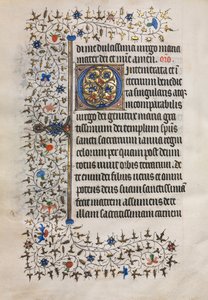 di me dulcissima uirgo maria
mater dei et mie amen. oro.
O Intemerata et i
eternum benedic
ta singularis atq
incomparabilis
uirgo dei genitrix maria gra
tissimum dei templum spūs
sancti sacrarium ianua regni
celorum per quam post deum
totus uiuit orbis terrarum. de
te enim dei filius uerus et omni
potens deus suam sanctissimam
matrem assumens de te
illam sacratissimam carnem